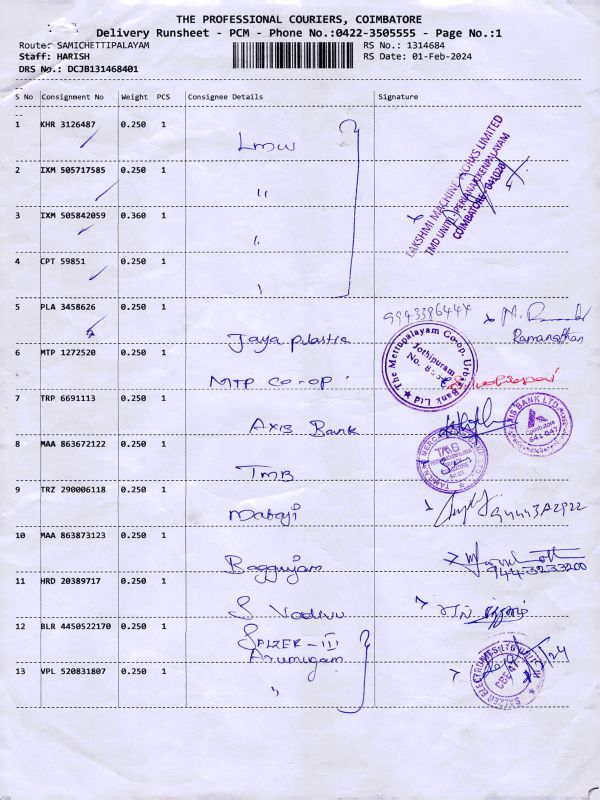 THE PROFESSIONAL COURIERS, COIMBATORE
Delivery Runsheet - PCM - Phone No.:0422-3505555 - Page No.:1
Route: SAMICHETTIPALAYAM
RS No.: 1314684
Staff: HARISH
RS Date: 01-Feb-2024
DRS No.: DCJB131468401
S No Consignment No Weight PCS Consignee Details Signature
1 KHR 3126487 0.250 1 Lmw
LAKSHMI MACHINE WORKS LIMITED
TMD UNIT II, PERIANAICKENPALAYAM
COIMBATORE - 641020
2 IXM 505717585 0.250 1 "
3 IXM 505842059 0.360 1
4 CPT 59851 0.250 1
5 PLA 3458626 0.250 1 Jaya plastic 9943396444 M.
Ramanathan
6 MTP 1272520 0.250 1 MTP CO-OP
The Mettupalayam Co-op. Urban Bank Ltd
Jothipuram
7 TRP 6691113 0.250 1 AXIS Bank
AXIS BANK LTD
Coimbatore
641 047
8 MAA 863672122 0.250 1 TMB
TMB
9 TRZ 290006118 0.250 1 Mataji
10 MAA 863873123 0.250 1
11 HRD 20389717 0.250 1 S Vadivu
12 BLR 4450522170 0.250 1 SALZER - III
Arumugam
13 VPL 520831807 0.250 1 "
SALZER ELECTRONICS LTD